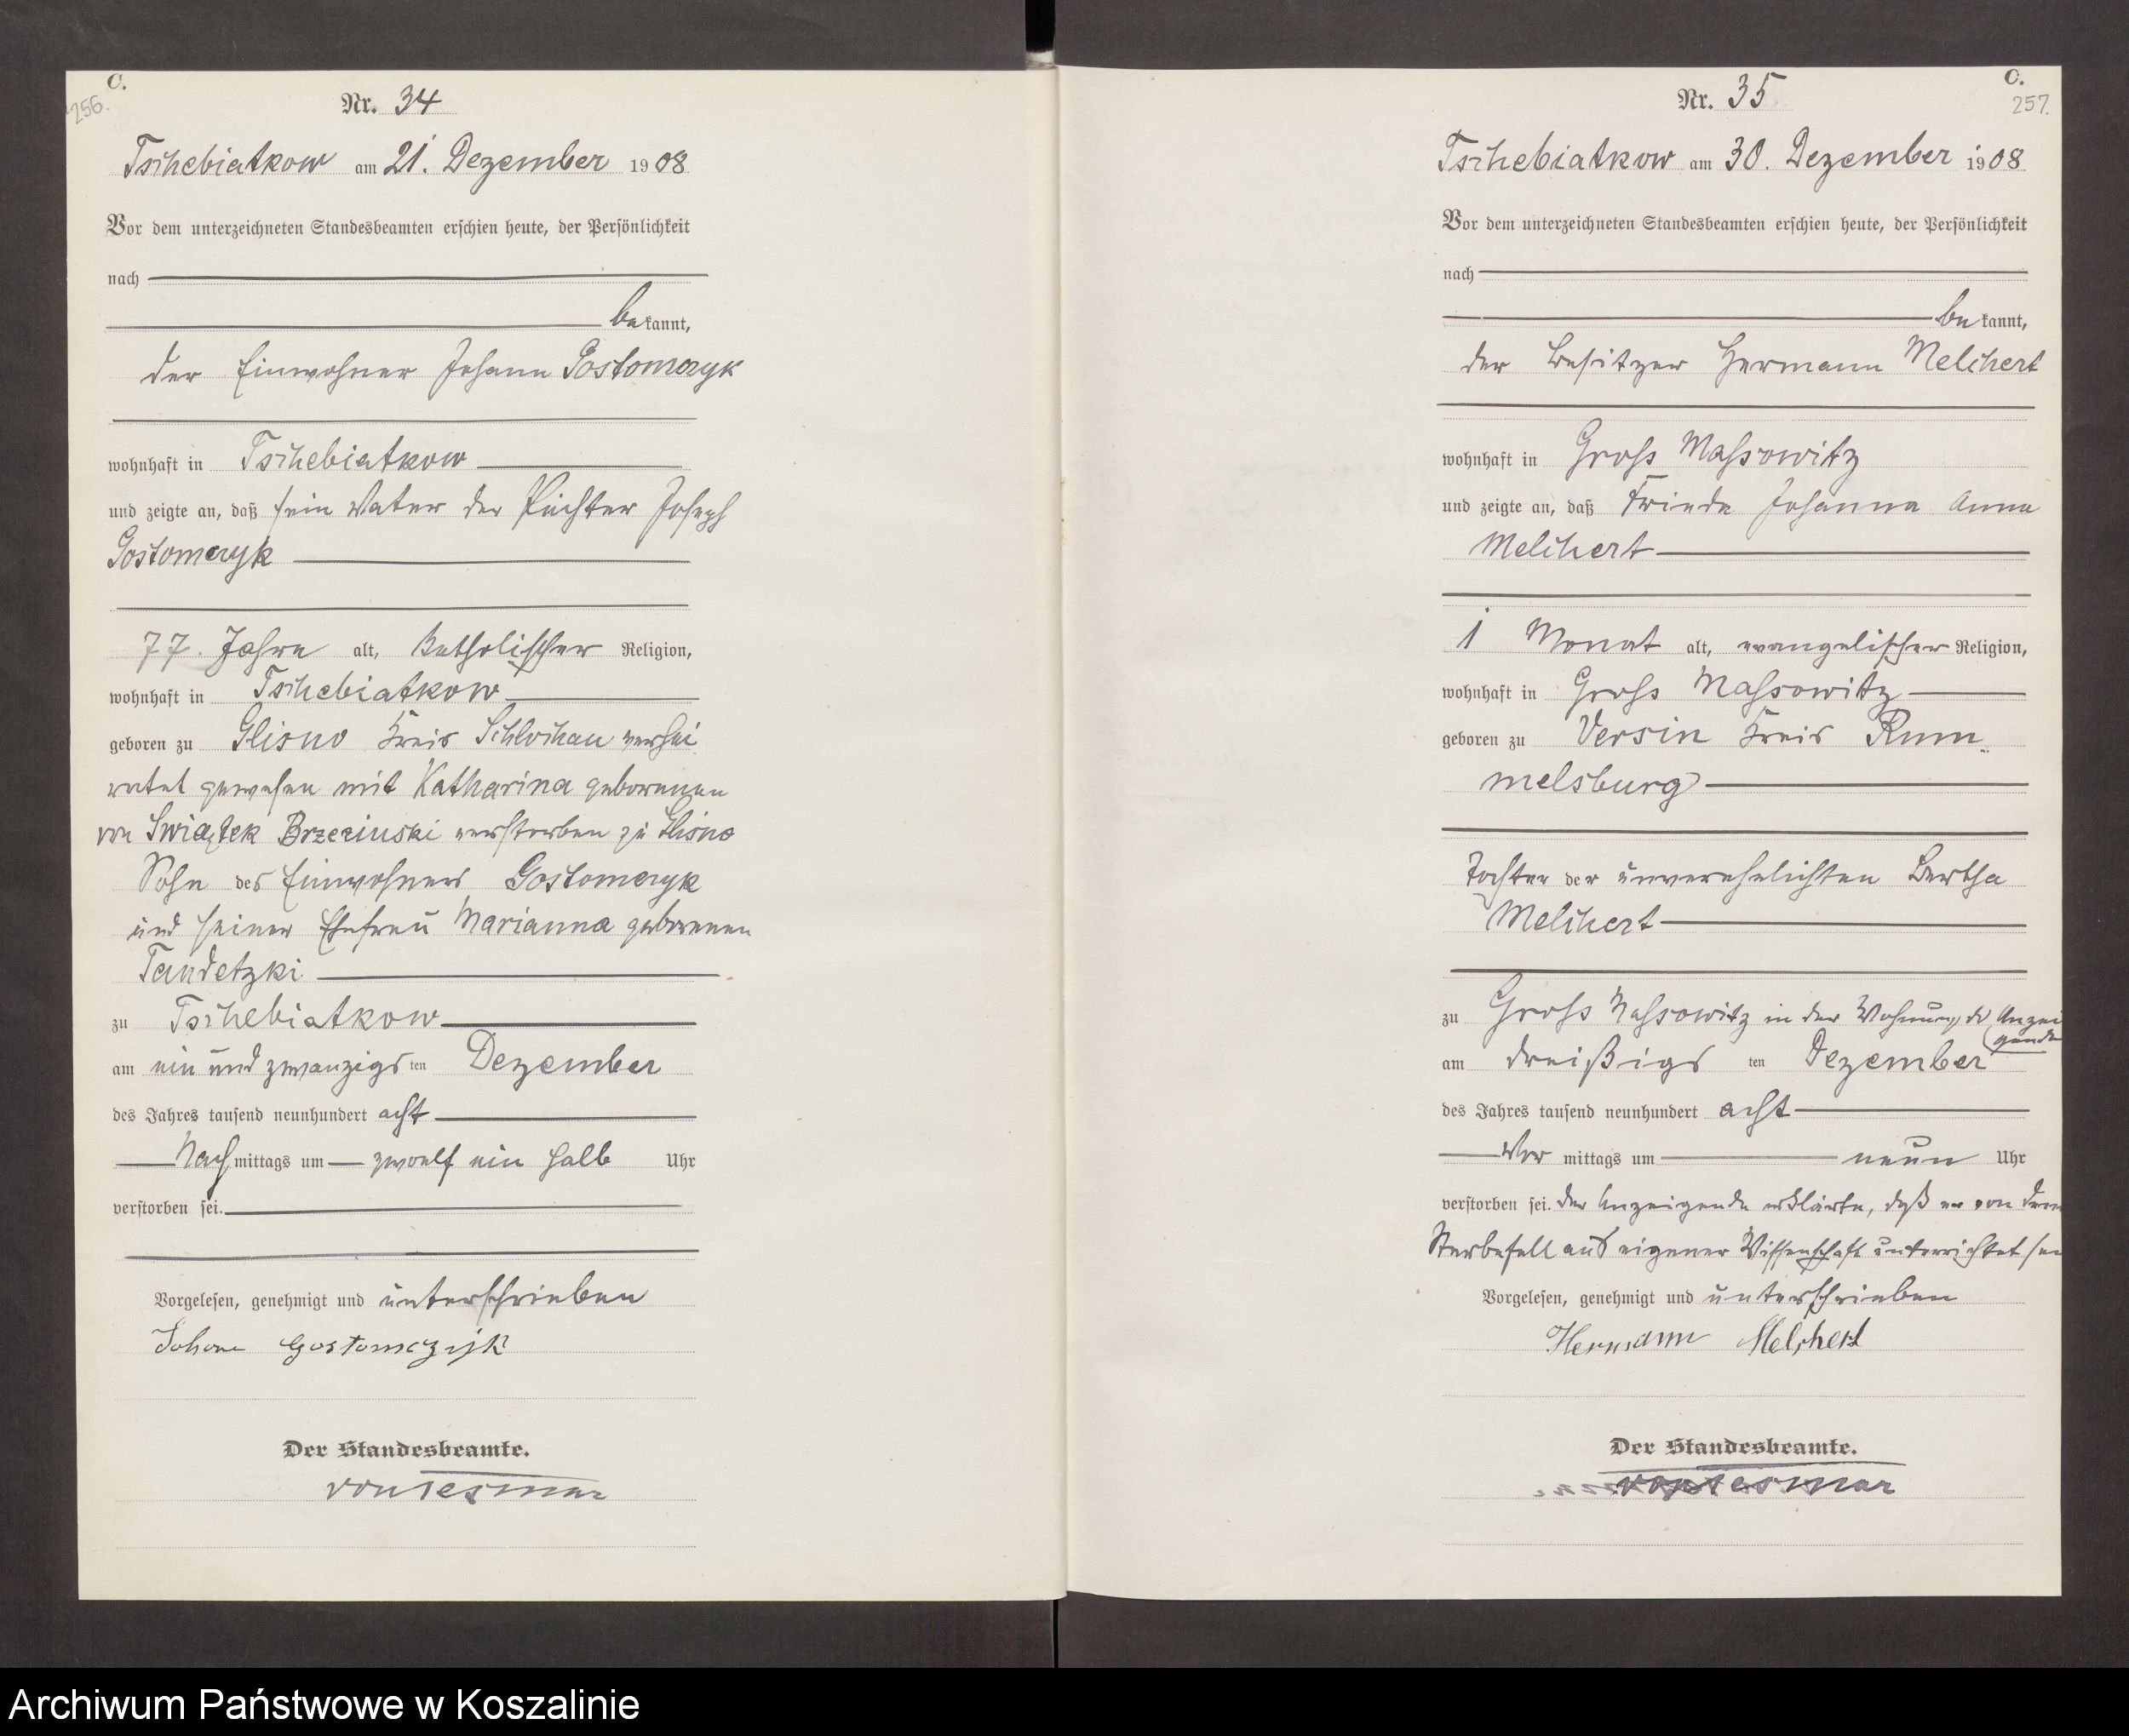 C.
256.
Nr. 34
Tschebiatkow am 21. Dezember 1908
Vor dem unterzeichneten Standesbeamten erschien heute, der Persönlichkeit
nach
bekannt,
der Einwohner Johann Gostomczyk
wohnhaft in Tschebiatkow
und zeigte an, daß sein Vater der Pächter Joseph
Gostomczyk
77. Jahre alt, katholischer Religion,
wohnhaft in Tschebiatkow
geboren zu Glisno Kreis Schlochau verhei
ratet gewesen mit Katharina geborenen
von Swiątek Brzezinski verstorben zu Glisno
Sohn des Einwohners Gostomczyk
und seiner Ehefrau Marianna geborenen
Tandetzki
zu Tschebiatkow
am ein und zwanzigsten Dezember
des Jahres tausend neunhundert acht
Nachmittags um zwoelf ein halb Uhr
verstorben sei.
Vorgelesen, genehmigt und unterschrieben
Johann Gostomczyk
Der Standesbeamte.
von Tesmar
C.
257.
Nr. 35
Tschebiatkow am 30. Dezember 1908
Vor dem unterzeichneten Standesbeamten erschien heute, der Persönlichkeit
nach
bekannt,
der Besitzer Hermann Melchert
wohnhaft in Gross Massowitz
und zeigte an, daß Frieda Johanna Anna
Melchert
1 Monat alt, evangelischer Religion,
wohnhaft in Gross Massowitz
geboren zu Versin Kreis Rum
melsburg
Tochter der unverehelichten Bertha
Melchert
zu Gross Massowitz in der Wohnung des Anzei
genden
am dreißigsten Dezember
des Jahres tausend neunhundert acht
Vormittags um neun Uhr
verstorben sei. Der Anzeigende erklärte, daß er von dem
Sterbefall aus eigener Wissenschaft unterrichtet sei
Vorgelesen, genehmigt und unterschrieben
Hermann Melchert
Der Standesbeamte.
von Tesmar
Archiwum Państwowe w Koszalinie